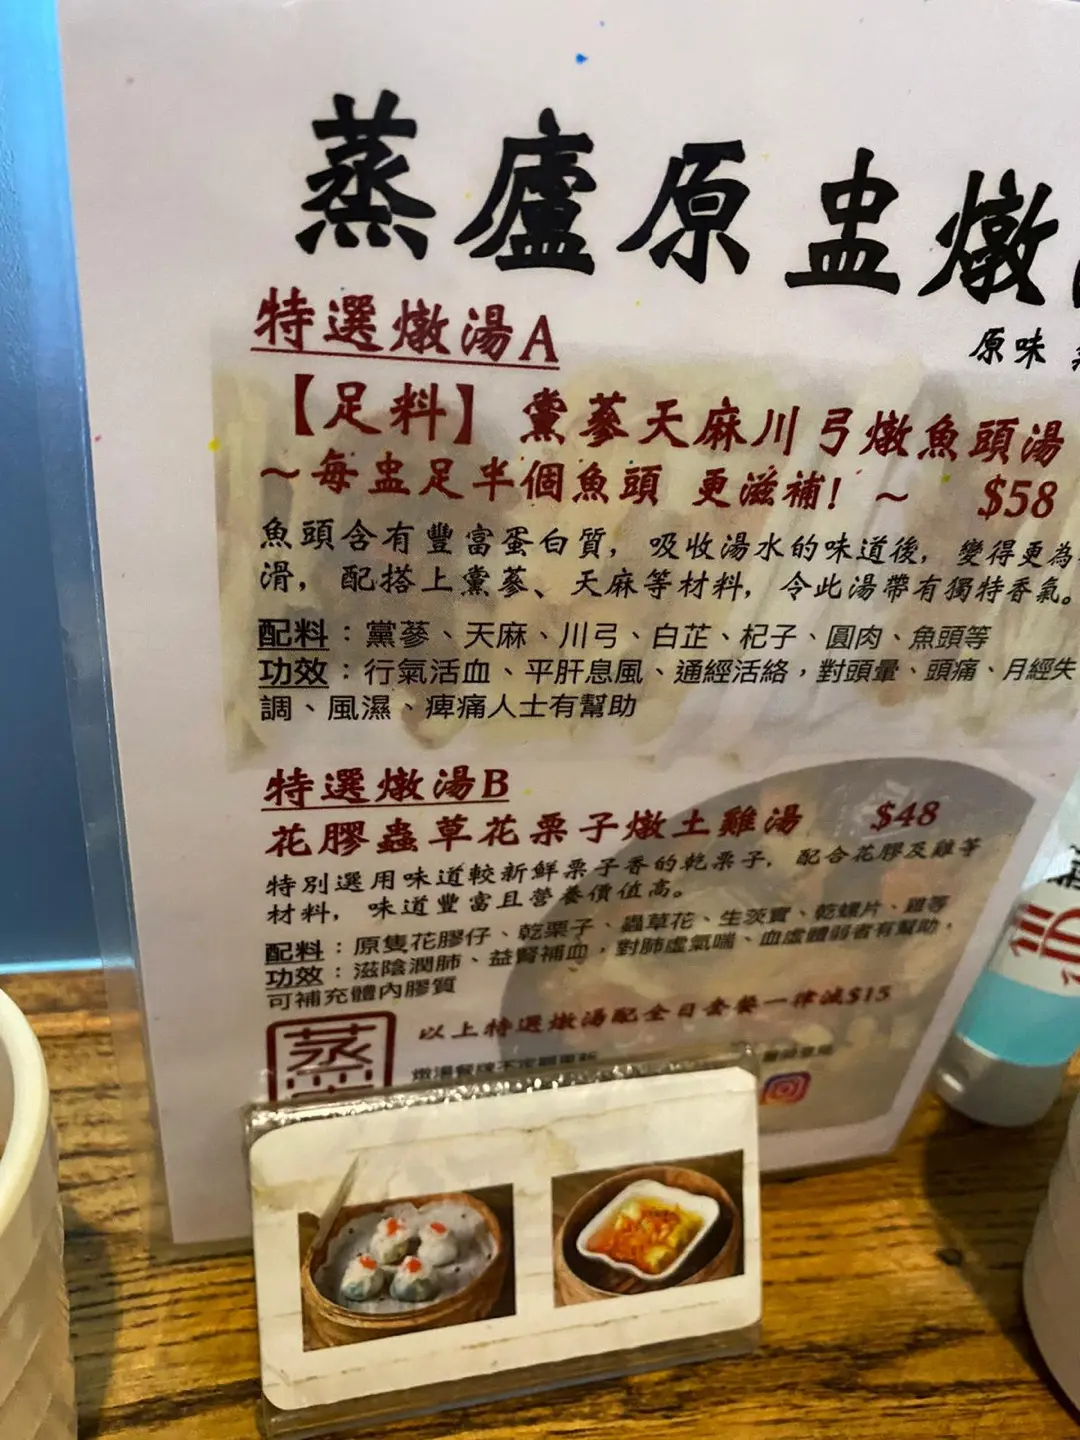 蒸廬原盅燉
原味
特選燉湯A
【足料】黨蔘天麻川弓燉魚頭湯
～每盅足半個魚頭 更滋補! ～ $58
魚頭含有豐富蛋白質，吸收湯水的味道後，變得更為
滑，配搭上黨蔘、天麻等材料，令此湯帶有獨特香氣。
配料：黨蔘、天麻、川弓、白芷、杞子、圓肉、魚頭等
功效：行氣活血、平肝息風、通經活絡，對頭暈、頭痛、月經失
調、風濕、痺痛人士有幫助
特選燉湯B
花膠蟲草花栗子燉土雞湯 $48
特別選用味道較新鮮栗子香的乾栗子，配合花膠及雞等
材料，味道豐富且營養價值高。
配料：原隻花膠仔、乾栗子、蟲草花、生茨實、乾螺片、雞等
功效：滋陰潤肺、益腎補血，對肺虛氣喘、血虛體弱者有幫助，
可補充體內膠質
以上特選燉湯配全日套餐一律減$15
蒸